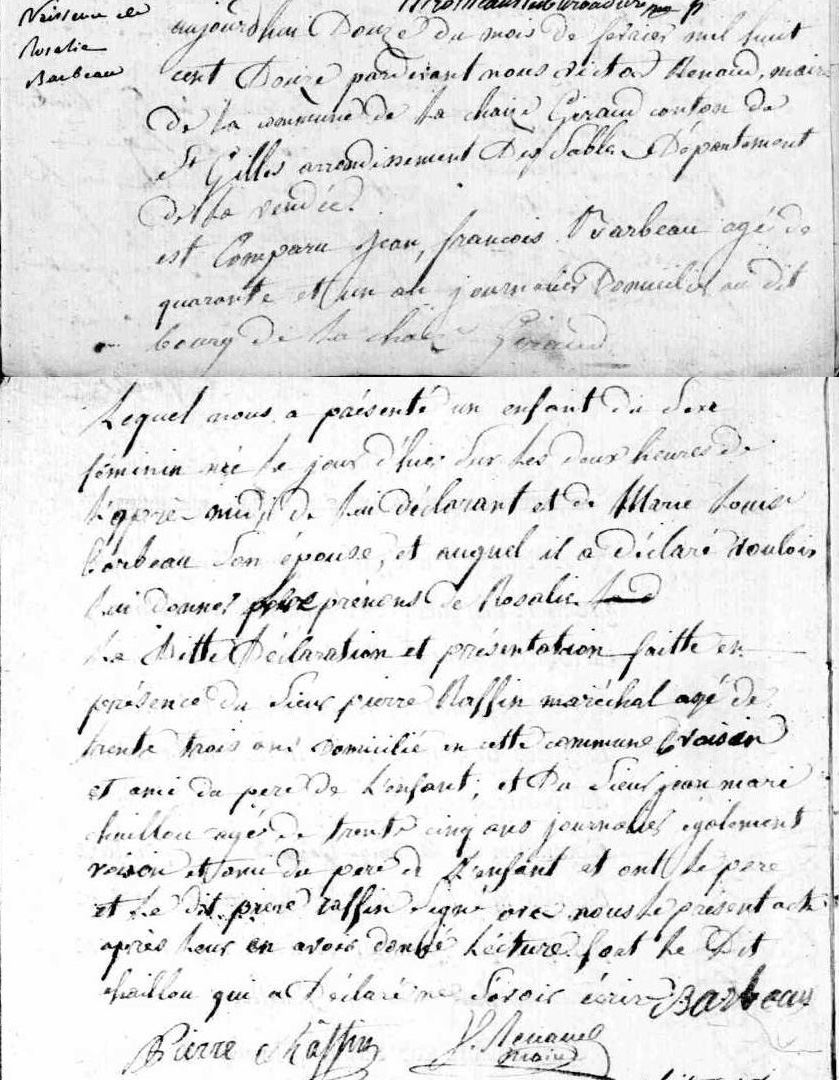 Naissance de
Rosalie
Barbeau
aujourdhui Douze du mois de fevrier mil huit
cent Douze pardevant nous victor Renaud, maire
de la commune de la chaize Giraud conton de
St Gilles arrondissement Des Sables Département
de la vendée.
est Comparu Jean, francois Barbeau agé de
quarante et un an journalier Domicilié au dit
bourg de la chaize Giraud
Lequel nous a présenté un enfant du Sexe
féminin née le jour d'hier Sur les deux heures de
l'après-midi de lui déclarant et de Marie Louise
Barbeau Son épouse, et auquel il a déclaré vouloir
lui donner prénons de Rosalie
La Ditte Déclaration et présentation faitte en
présence du Sieur pierre Raffin maréchal agé de
trente trois ans Domicilié en cette commune voisin
et ami du pere de L'enfant, et Du Sieur jean mari
chaillou agés de trente cinq ans journalier également
voison et ami du pere de L'enfant et ont le pere
et Le dit pierre raffin Signé avec nous le présent acte
après leur en avoir donné Lécture. font Le Dit
chaillou qui a Déclaré ne Savoir écrire Barbeau
Pierre Raffin V. Renaud
maire